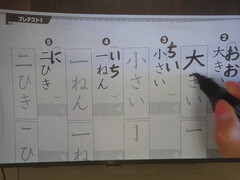 プレテスト1
② 大きい
おお
大きい
一
③ 小さい
ちい
小さい
亅
④ 一ねん
いち
一ねん
一ね
⑤ 二ひき
に
二ひき
二ひ